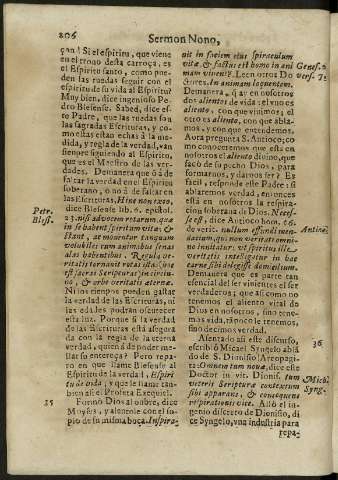 206
Sermon Nono,
çon! Si el espiritu, que viene
en el trono desta carroça, es
el Espiritu santo, como pue-
den las ruedas seguir con el
espiritu de su vida al Espiritu?
Muy bien, dice ingenioso Pe-
dro Blesense. Sabed, dice es-
to Padre, que las ruedas son
las sagradas Escrituras, y co-
mo ellas estàn echas à la me-
dida, y regla de la verdad, van
siempre siguiendo al Espiritu,
que es el Maestro de las ver-
dades. Demanera que ò à de
faltar la verdad en el Espiritu
soberano, o no à de faltar en
las Escrituras. Hinc non rexo,
dice Blesense lib. 6. epistol.
23. nisi adverto rotarum, quæ
in se habent spiritum vitæ; &
stant, ac moventur tanquam
volubiles tum animalibus senas
alas habentibus. Regula ve-
ritatis tornavit rotas istas, hoc
est, sacras Scripturas in circui-
tu, & orbe veritatis æternæ.
Ni los tienpos pueden gastar
la verdad de las Escrituras, ni
las edades podràn oscurecer
esta luz. Porque si la verdad
de las Escrituras està asegura-
da con la regla de la eterna
verdad, quien à de poder me-
llar su entereça? Pero repa-
ro en que llame Blesense al
Espiritu de la verdad, Espiri-
tu de vida, y que le llame tan-
bien asi el Profeta Ezequiel.
Formò Dios al onbre, dice
Moyses, y alentole con el so-
plo de su misma boca. Inspira-
Petr.
Bless.
35
vit in faciem eius spiraculum
vitæ, & factus est homo in ani
mam viventẽ. Leen otros Do
ctores. In animam loquentem.
Demanera, que ay en nosotros
dos alientos de vida: el uno es
aliento, con que vivimos; el
otro es aliento, con que abla-
mos, y con que entendemos.
Aora pregunta S. Antioco; co
mo conoceremos que està en
nosotros el aliento divino, que
sacò de su pecho Dios, para
formarnos, y darnos ser? Es
facil, responde este Padre: si
ablaremos verdad, entonces
està en nosotros la respira-
cion soberana de Dios. Neces-
se est, dice Antioco hom. 66.
de verit. nullum effundi men-
dacium, qui non veritati omni-
no innitatur. vt spiritus ille
veritatis integritatur in hac
carne sibi delegisse domicilium.
Demanera que es parte tan
esencial del ser vivientes el ser
verdaderos; que asi como no
tenemos el aliento vital de
Dios en vivir, sino tene-
mos vida, tanpoco le tenemos,
sino decimos verdad.
Alentado asi este discurso,
escribiò Micael Syngelo ablã
do de S. Dionisio Areopagi-
ta: Omnia tam nova, dice este
Doctor in vit. Dionis. tum
veteris Scripturæ contextum
sibi apparans, & consequens
respirationis vice. Allò el in-
genio discreto de Dionisio, di
ce Syngelo, vna industria para
repa-
Genes. 2
vers. 7.
Antioc.
36
Mich.
Syng.